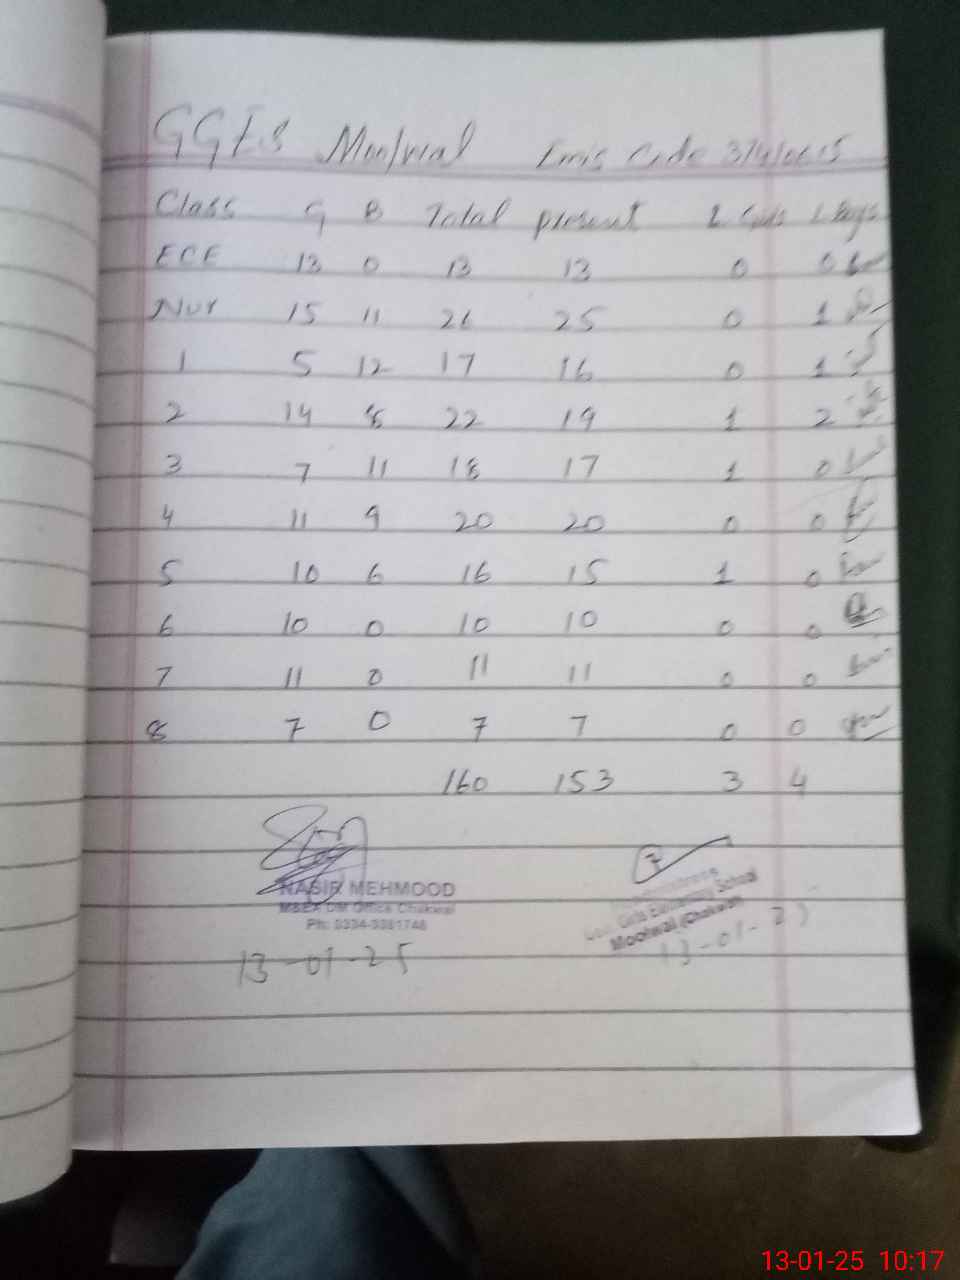 GGES Moolwal Emis Code
Class G B Total present L Girls L Boys
ECE 13 0 13 13 0 0
Nur 15 11 26 25 0 1
1 5 12 17 16 0 1
2 14 8 22 19 1 2
3 7 11 18 17 1 0
4 11 9 20 20 0 0
5 10 6 16 15 1 0
6 10 0 10 10 0 0
7 11 0 11 11 0 0
8 7 0 7 7 0 0
160 153 3 4
NASIR MEHMOOD
MSEA DM Office Chakwal
Ph:
13-01-25
Girls Elementary School
Moolwal (Chakwal)
13-01-25
13-01-25 10:17